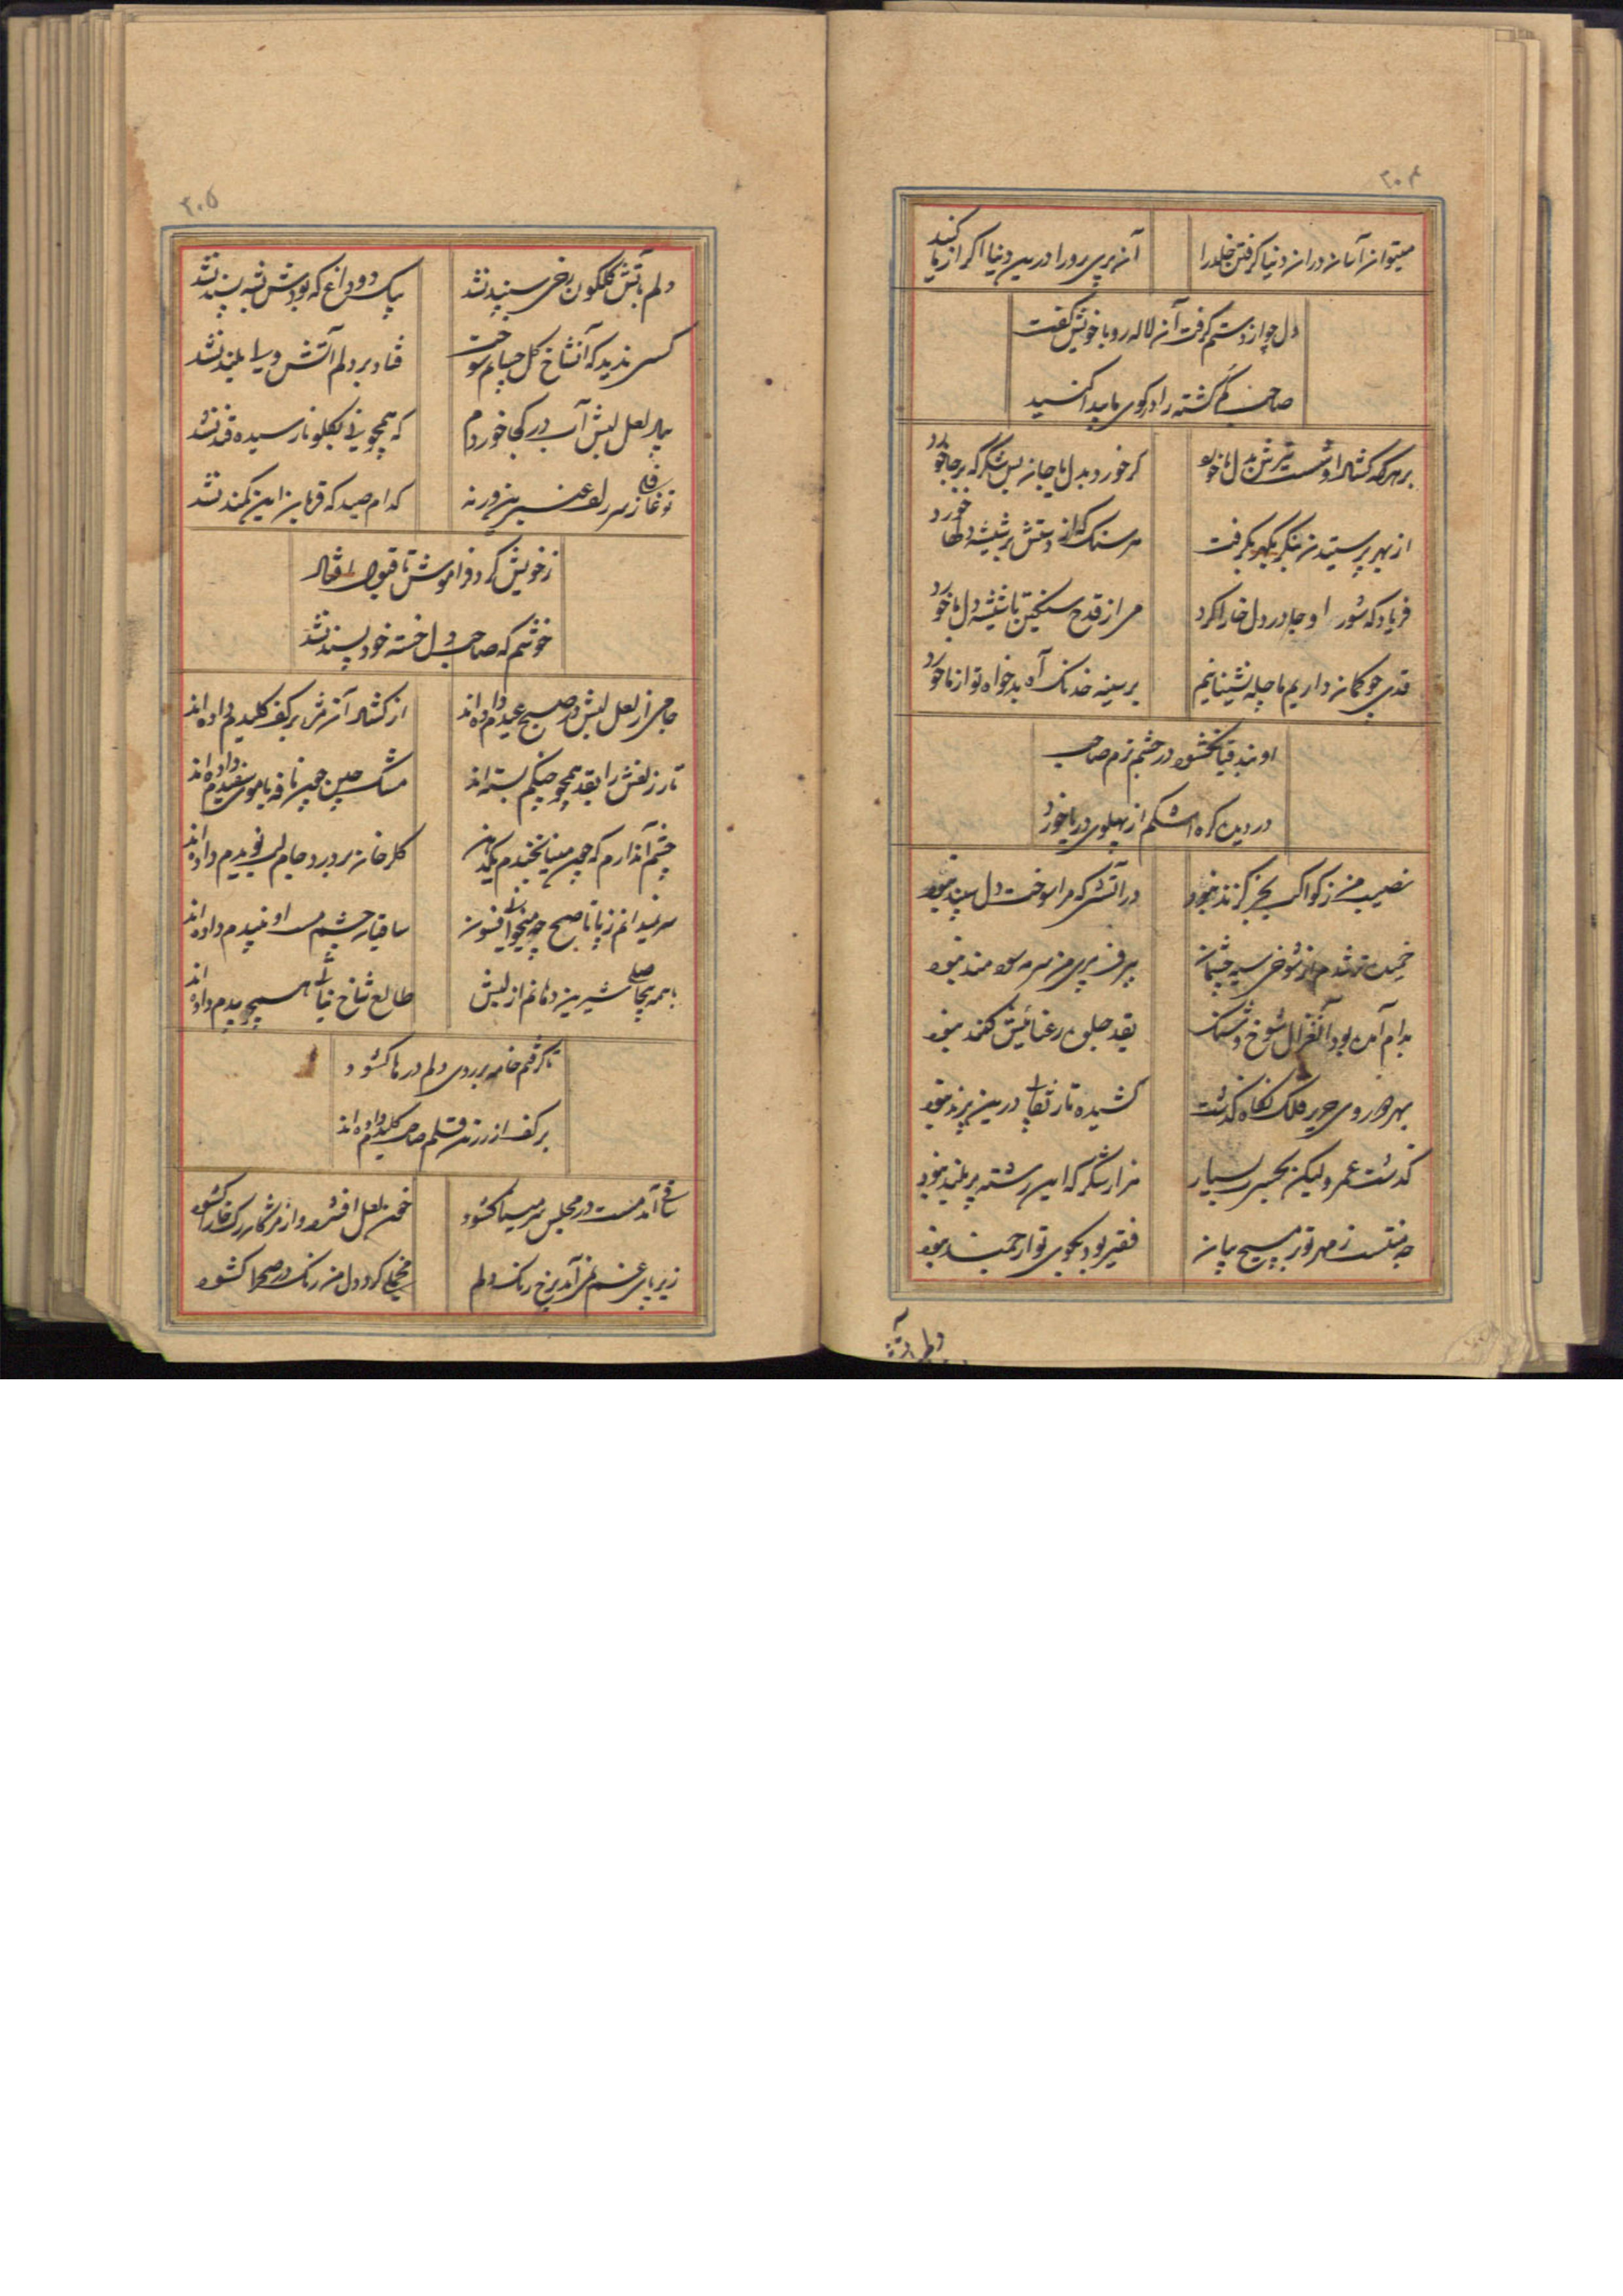 ۲۰۴
میتوان آسان در ان دنیا گرفتن خلد را
آن پری رو را درین دنیا اگر از ما کنید
دل چو از دستم گرفت آن لاله رو با خویش گفت
صاحب گم گشته را در کوی ما پیدا کنید
بر هر که گشاد او شست تیرش بدل ما خورد
گر خورد بدل یا جان بس شکر که بر جا خورد
از بهر پرستیدن بنگر بگهر بگرفت
هر سنگ که از دستش بر شیشه دلها خورد
فریاد که شور او جا در دل خارا کرد
می از قدح سنگین با شیشه دل ما خورد
قدی چو کمان داریم ما چله نشینانیم
بر سینه خدنگ آه بدخواه تو از ما خورد
او بند قبا نگشود در چشم ترم صاحب
در دیده گره اشکم از پهلوی دریا خورد
نصیب من ز کواکب بجز گزند نبود
در آتشی که مرا سوخت دل سپند نبود
شدم از شوخی سیه چشمان
پیر من سرمه سودمند نبود
بدام آمده بود آن غزال شوخ و شنگ
بقد جلوه رعنائیش کمند نبود
بهر دو روی حریر فلک نگاه گذشت
کشیده تار نقابی درین پرند نبود
گذشت عمر ولیکن بحبس بسیار
هزار شکر که این رشته پر بلند نبود
چه منتست ز مهر تو بر مسیح بیان
فقیر بود بکوی تو ارجمند نبود
دلم بآتش
۲۰۵
دلم بآتش گلگون رخی سپند نشد
پاک دود داغ که بودش نشه پسند نشد
کسی ندید که آنشاخ گل چسانم سوخت
فتاد بر دلم آتش ولی بلند نشد
بیاد لعل لبش آب در کجا خوردم
که همچو نی بگلو نارسیده قند نشد
تو غافلی ز سر زلف عنبرین ورنه
کدام صید که قربان این کمند نشد
ز خویش کرد فراموش تا قبول افتاد
خوشم که صاحب دل خسته خود پسند نشد
جامی از لعل لبش در صبح عیدم داده اند
از گشاد آن مژه بر کف کلیدم داده اند
تار زلفش را بقد همچو چنگم بسته اند
مشک چین چین نافه با موی سفیدم داده اند
چشم آن دارم که چون مینا نخندم یک دهن
گلرخان بر درد جام لب نویدم داده اند
سر نمیدانم ز پا ناصح چه میخوانی فسون
ساقیان چشم مست او نبیدم داده اند
با همه بیحاصلی شیرین دهانم از لبش
طالع شاخ نباتی همچو بیدم داده اند
تا گرفتم خامه بر روی دلم درها گشود
بر کف از رزق قلم صاحب کلیدم داده اند
ساقی آمد مست در مجلس سر مینا گشود
خون لعل افشرد و از مژگان رگ خارا گشود
زیر پای غم بر آمد بر رخ رنگ دلم
محملی کرد و دل من رنگ در صحرا گشود